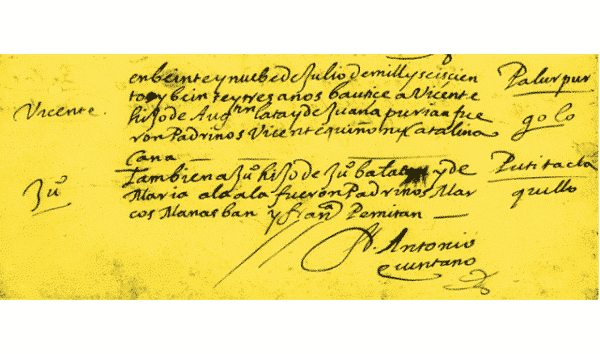 Vicente.
en beinte y nuebe de Julio de mill y seiscien
tos y beinte y tres años bautice a Vicente
hijo de Aug^tin latay de Juana purian fue
ron Padrinos Vicente quinon y Catalina
Cana
Palurpur
golo
Ju^o
Tambien a Ju^o hijo de Ju^o balatan y de
Maria ala ala fueron Padrinos Mar
cos Manasban y fran^ca Pemitan
Putitacla
quillo
Fr. Antonio
Quintano